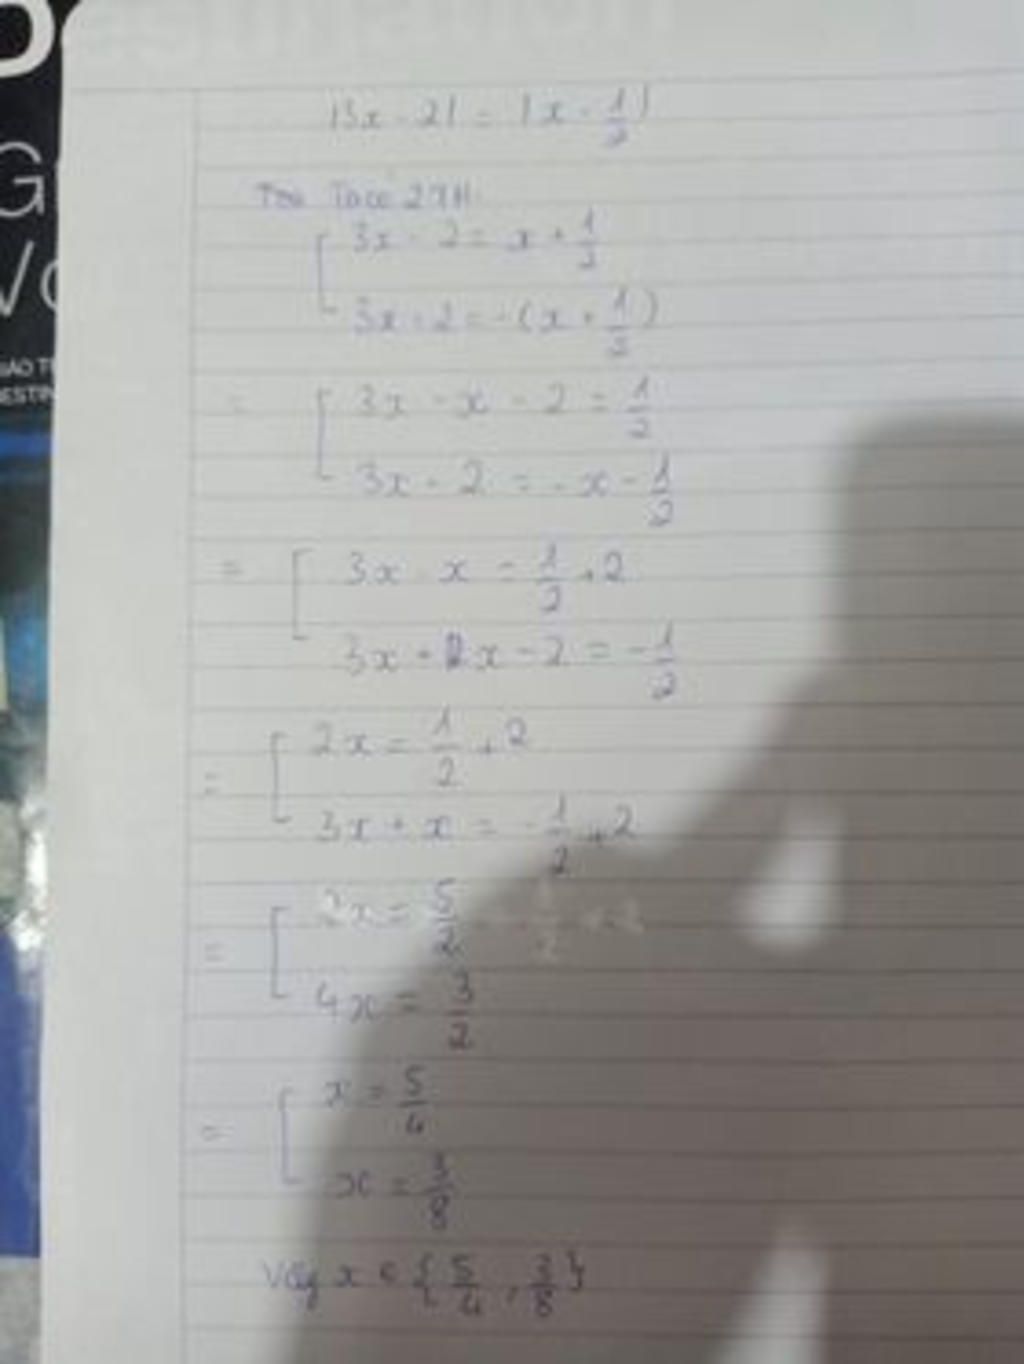 estination
G
Vo
ESTIN
|3x - 2| = |x - 1/2|
Ta co 2TH
[ 3x - 2 = x + 1/2
3x - 2 = -(x + 1/2)
= [ 3x - x - 2 = 1/2
3x - 2 = -x - 1/2
= [ 3x - x = 1/2 + 2
3x + x - 2 = -1/2
= [ 2x = 1/2 + 2
3x + x = -1/2 + 2
= [ 2x = 5/2
4x = 3/2
= [ x = 5/4
x = 3/8
Vậy x ∈ { 5/4 , 3/8 }